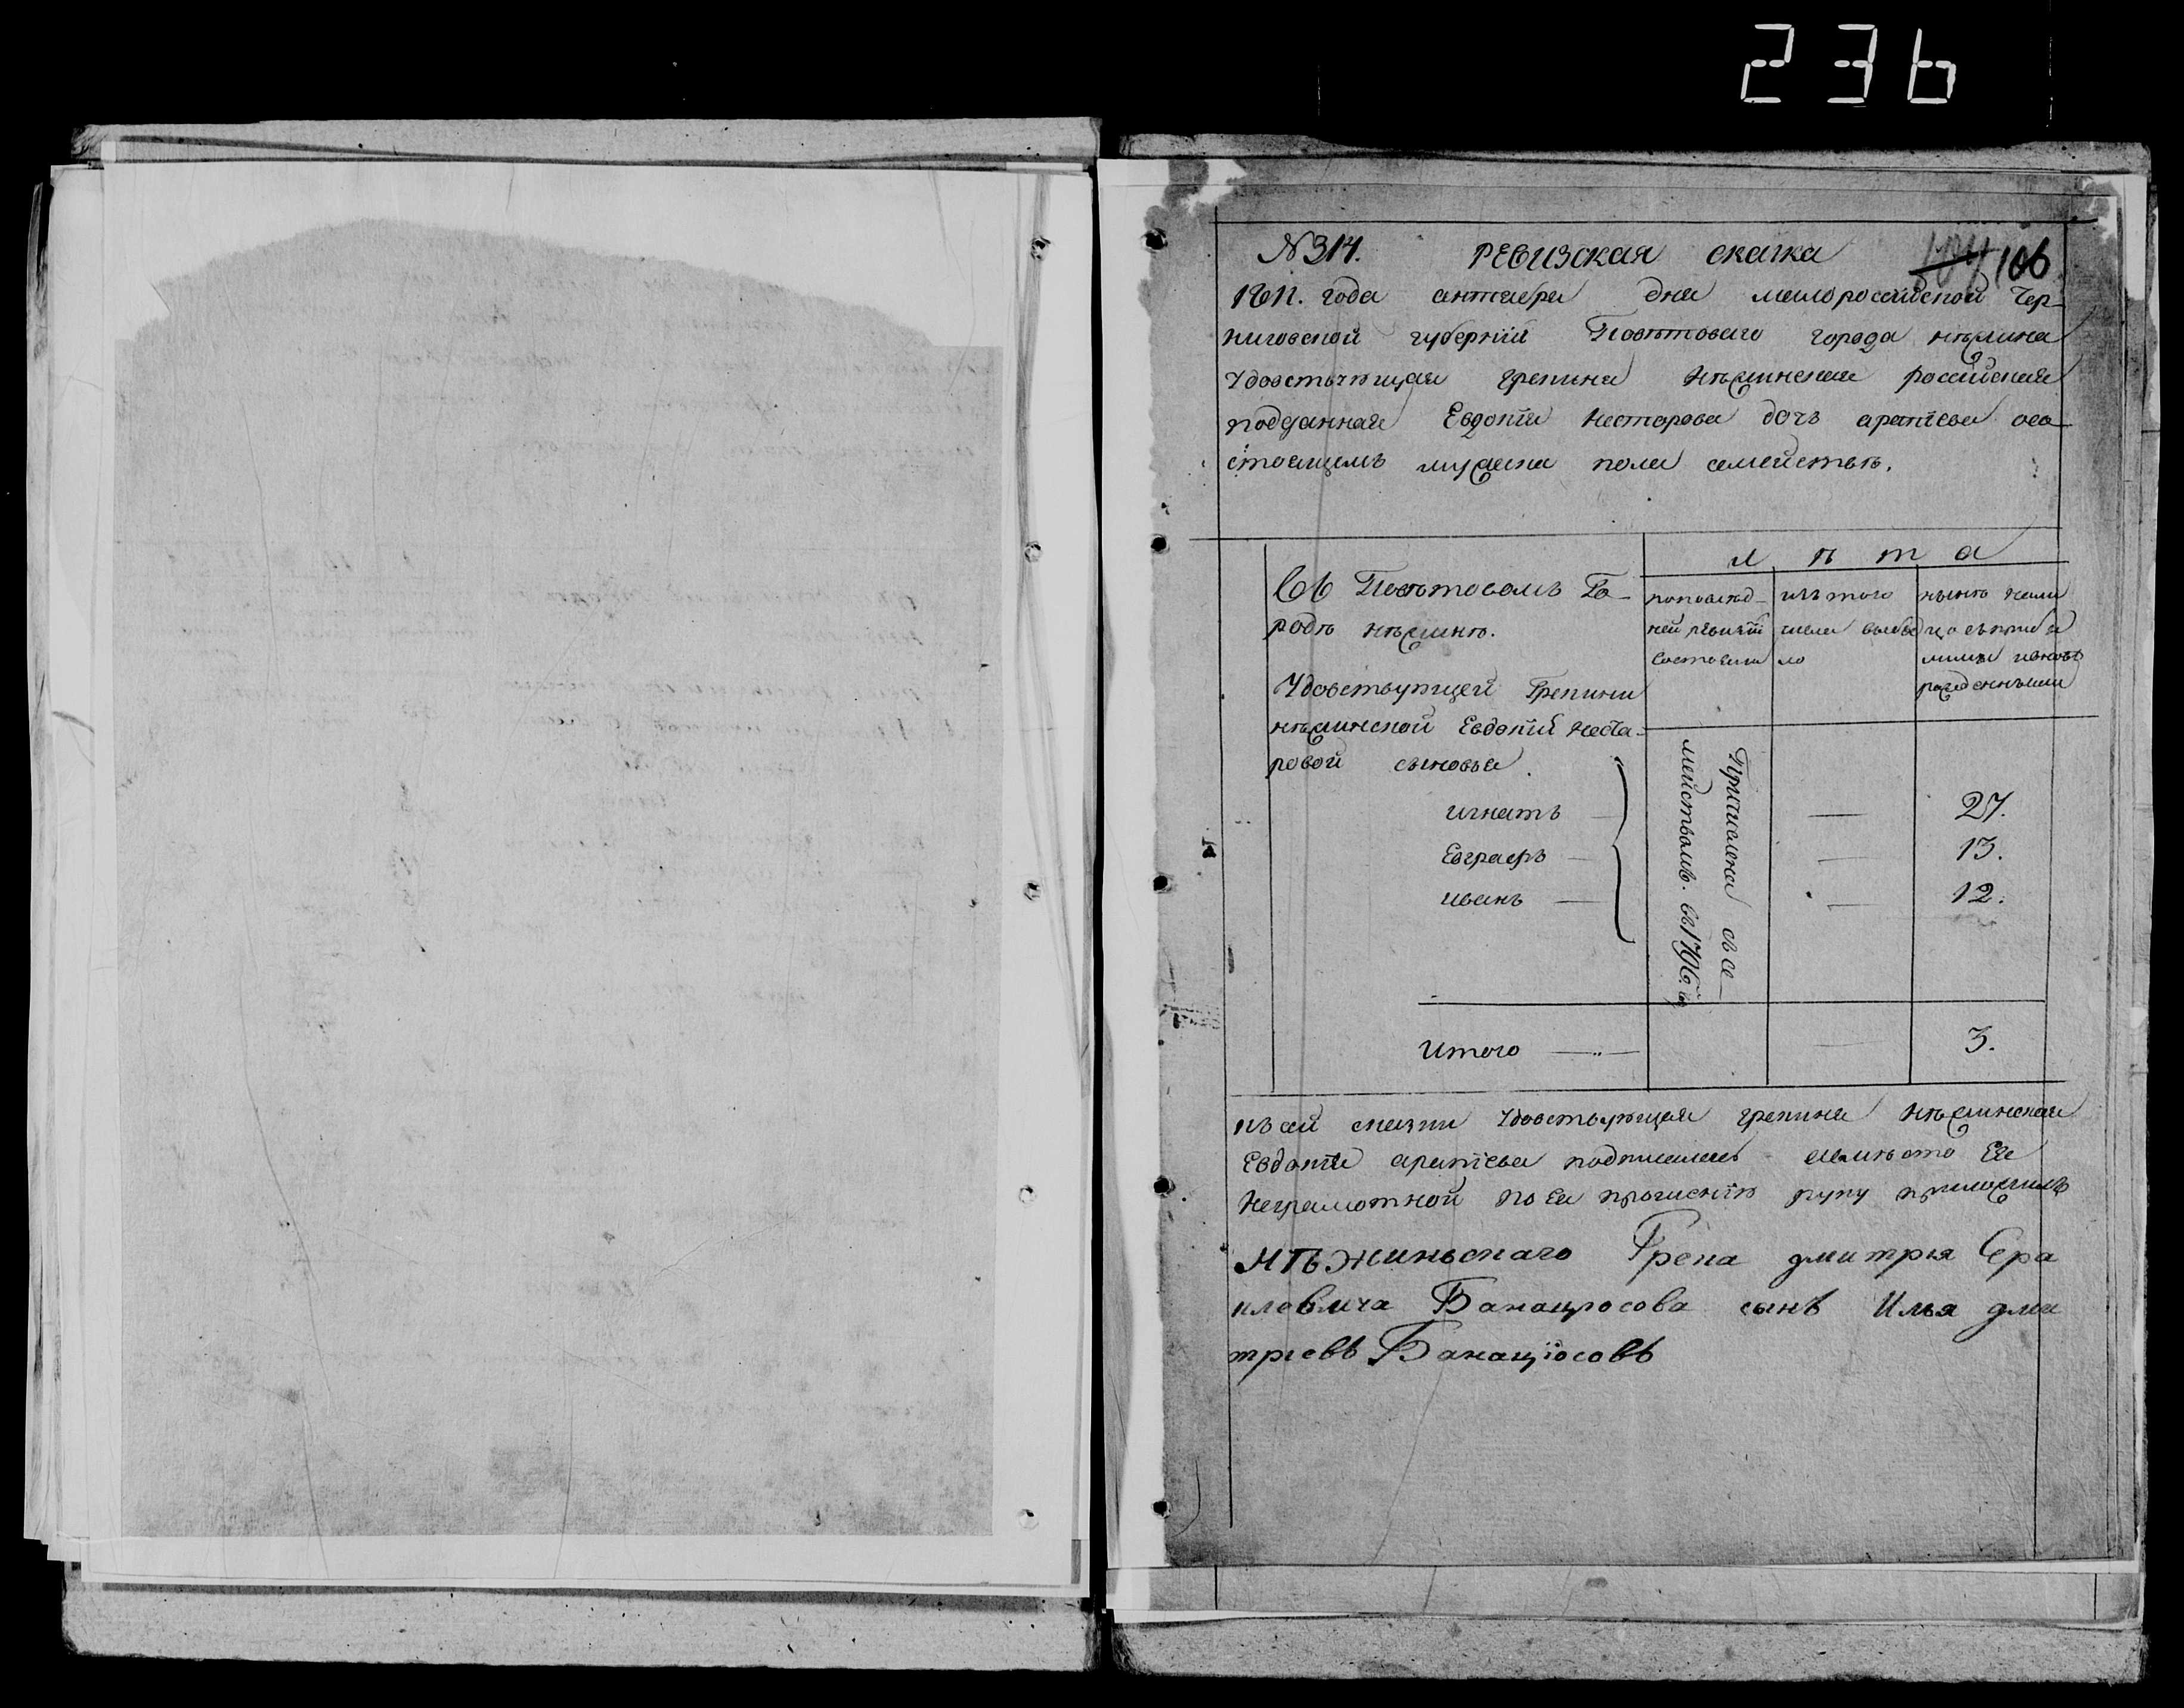 236
№ 314. РЕВИЗСКАЯ сказка 106
1811. года октября дня малороссійской Чер-
ниговской губерніи Повѣтоваго города нѣжина
Удовствующая грекиня Нѣжинская россійская
подданная Евдокія Нестерова дочъ
стоящемъ мужеска пола семействѣ.
л ѣ т а
Въ Повѣтовомъ Го-
родѣ нѣжинѣ.
Удовствующей Грекини
нѣжинской Евдокіи Несте-
ровой сыновья.
попослѣд-
ней ревизіи
состояли
изъ того
числа выбы
ло
нынѣ нали
цо съприбы
лыми ивновь
рожденными
Причислена съ се-
мействомъ. въ 1796. г.
игнатъ — — 27.
Евграфъ — — 13.
иванъ — — 12.
Итого — — 3.
къ сей сказки Удовствующая грекиня Нѣжинская
Евдокія подписалась Ея
Неграмотной по Ея прошенію руку приложилъ
Нѣжиньскаго Грека дмитрія Сера
Банацросова сынъ Илья дми
тріевъ Банаціосовъ